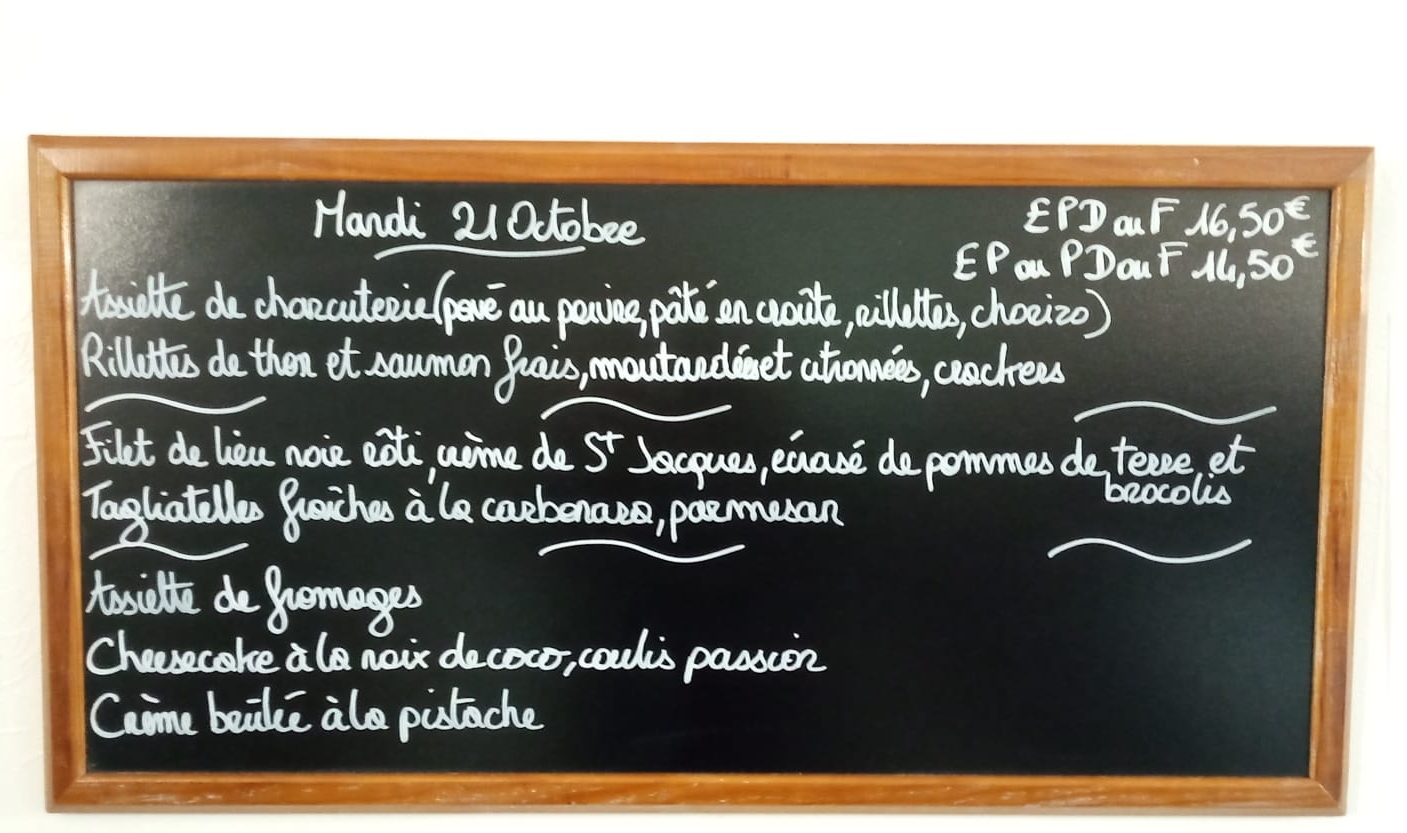 Mardi 21 Octobre
E P D ou F 16,50€
E P ou P D ou F 14,50€
Assiette de charcuterie (pavé au poivre, pâté en croûte, rillettes, chorizo)
Rillettes de thon et saumon frais, moutardées et citronnées, crackers
Filet de lieu noir rôti, crème de St Jacques, écrasé de pommes de terre et
brocolis
Tagliatelles fraîches à la carbonara, parmesan
Assiette de fromages
Cheesecake à la noix de coco, coulis passion
Crème brûlée à la pistache